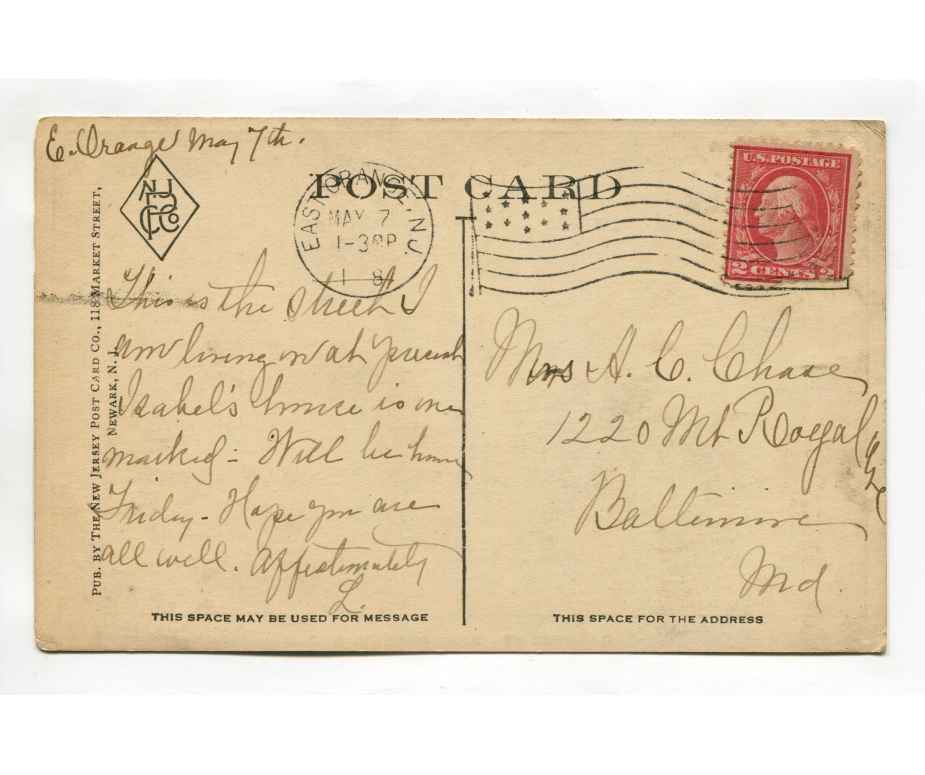 E. Orange May 7th.
POST CARD
EAST ORANGE, N.J.
MAY 7
1-30P
1 8
U.S. POSTAGE
2 CENTS 2
NJ
PCCo
PUB. BY THE NEW JERSEY POST CARD CO., 118 MARKET STREET,
NEWARK, N. J.
This is the street I
am living on at present
Isabel's house is one
marked - Will be home
Friday - Hope you are
all well. Affectionately
L.
Mrs A. C. Chase
1220 Mt Royal Ave
Baltimore
Md.
THIS SPACE MAY BE USED FOR MESSAGE
THIS SPACE FOR THE ADDRESS